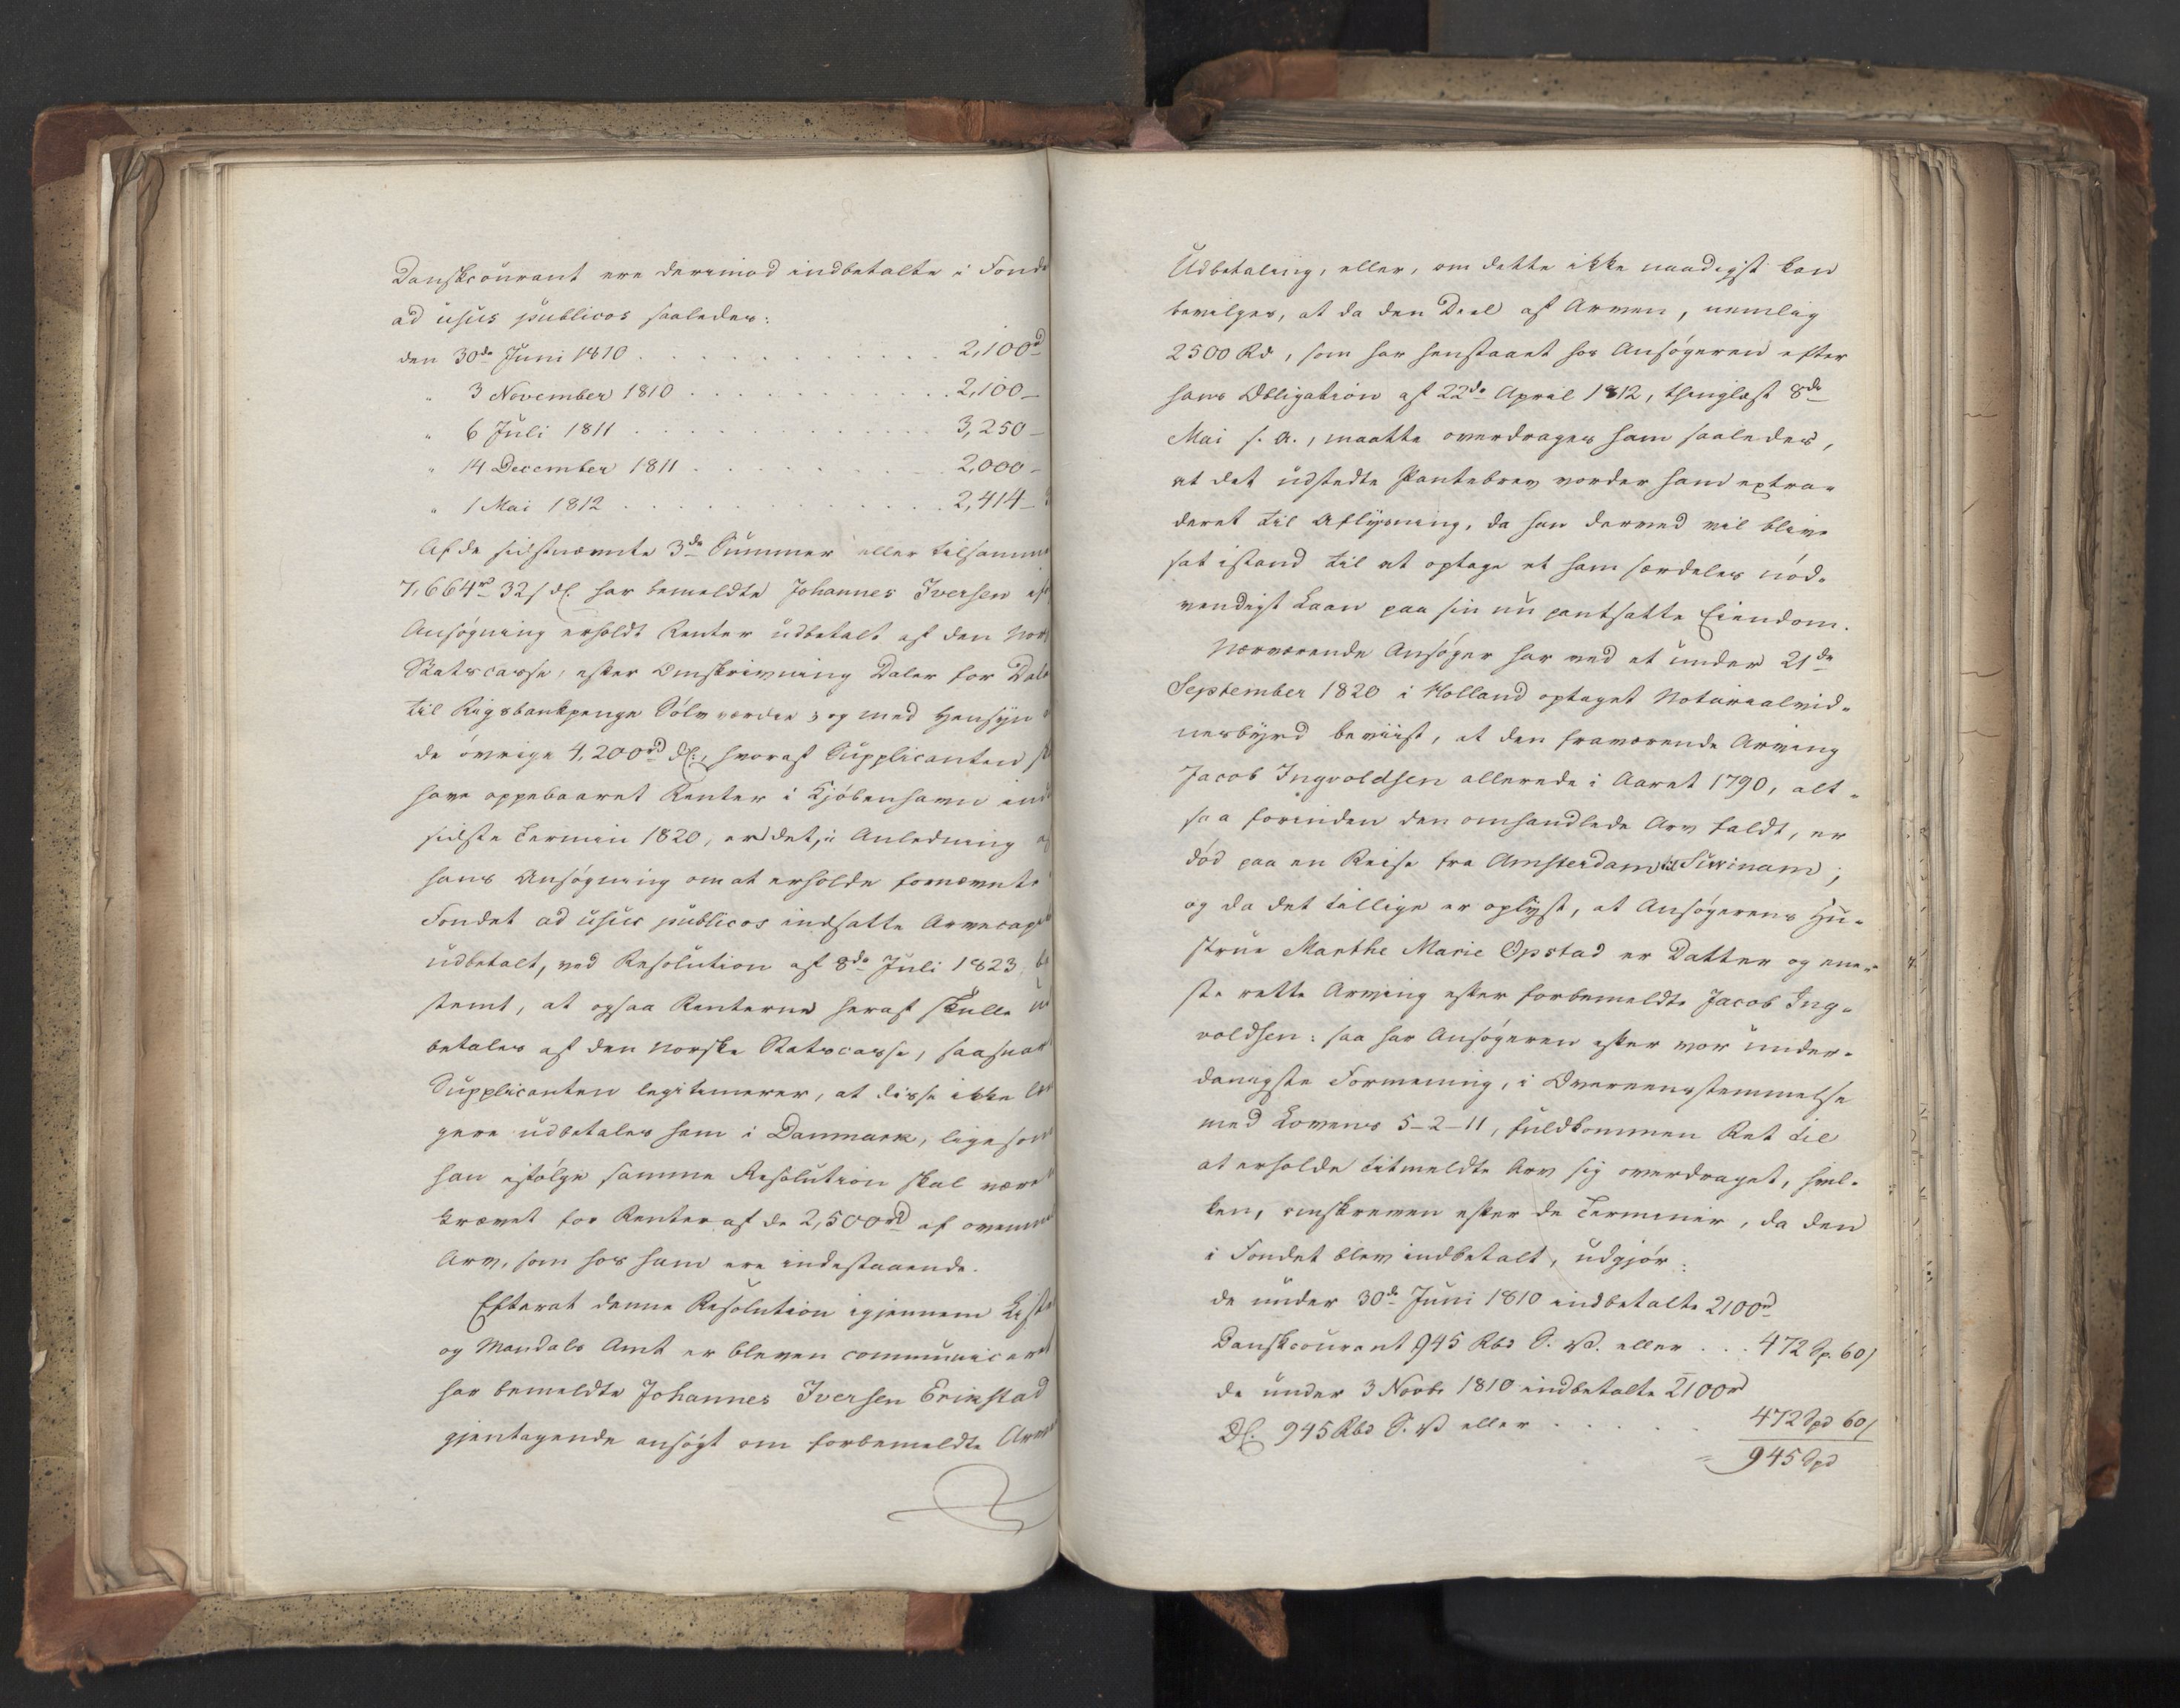 Danskcourant ere derimod indbetalte i Fondet
ad usus publicos saaledes:
den 30de Juni 1810 . . . . . . . . . . . 2,100rd
" 3 November 1810 . . . . . . . . . . . 2,100 -
" 6 Juli 1811 . . . . . . . . . . . 3,250 -
" 14 December 1811 . . . . . . . . . 2,000 -
" 1 Mai 1812 . . . . . . . . . . . 2,414 -
Af de sidstnævnte 3de Summer eller tilsamm
7,664rd 32 s DC har bemeldte Johannes Iversen eft
Ansøgning erholdt Renter udbetalt af den Nors
Statscasse, efter Omskrivning Daler for Dale
til Rigsbankpenge Sølvværdie; og med Hensyn
de øvrige 4,200rd DC., hvoraf Supplicanten s
have oppebaaret Renter i Kjøbenhavn ind
sidste Termin 1820, er det, i Anledning af
hans Ansøgning om at erholde fornævnte
Fondet ad usus publicos indsatte Arvecap
udbetalt, ved Resolution af 8de Juli 1823 be
stemt, at ogsaa Renterne heraf skulle u
betales af den norske Statscasse, saasnar
Supplicanten legitimerer, at disse ikke læn
gere udbetales ham i Danmark, ligesom
han ifølge samme Resolution skal være
krævet for Renter af de 2,500rd af ovenn
Arv, som hos ham ere indestaaende.
Efterat denne Resolution igjennem Liste
og Mandals Amt er bleven communiceret
har bemeldte Johannes Iversen Erikstad
gjentagende ansøgt om forbemeldte Arve
Udbetaling, eller, om dette ikke naadigst kan
bevilges, at da den Deel af Arven, nemlig
2500 Rd, som har henstaaet hos Ansøgeren efter
hans Obligation af 22de April 1812, thinglæst 8de
Mai s. A., maatte overdrages ham saaledes,
at det udstedte Pantebrev vorder ham extra-
deret til Aflysning, da han derved vil blive
sat istand til at optage et ham særdeles nød-
vendigt Laan paa sin nu pantsatte Eiendom.
Nærværende Ansøger har ved et under 21de
September 1820 i Holland optaget Notarialvid-
nesbyrd beviist, at den fraværende Arving
Jacob Ingvoldsen allerede i Aaret 1790, alt-
saa forinden den omhandlede Arv faldt, er
død paa en Reise fra Amsterdam til Surinam;
og da det tillige er oplyst, at Ansøgerens Hu-
strue Marthe Marie Opstad er Datter og ene-
ste rette Arving efter forbemeldte Jacob Ing-
voldsen: saa har Ansøgeren efter vor under-
danigste Formening, i Overeensstemmelse
med Lovens 5-2-11, fuldkommen Ret til
at erholde titmeldte Arv sig overdraget, hvil-
ken, omskreven efter de Terminer, da den
i Fondet blev indbetalt, udgjør:
de under 30de Juni 1810 indbetalte 2100rd
Danskcourant 945 Rbd S. V. eller . . . 472 Sp. 60 s
de under 3 Novbr 1810 indbetalte 2100rd
DC 945 Rbd S. V eller . . . . . 472 Spd 60 s
= 945 Spd